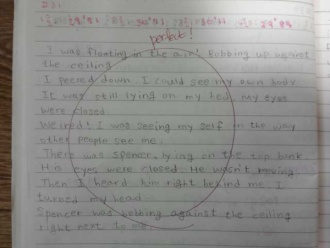 perfect!
I was floating in the air! Bobbing up against
the ceiling.
I peered down. I could see my own body
It was still lying on my bed, my eyes
were closed.
Weired! I was seeing my self in the way
other people see me.
There was spencer, lying on the top bunk
His eyes were closed. He wasn't moving.
Then I heard him right behind me. I
turned my head
Spencer was bobbing against the ceiling
right next to me.